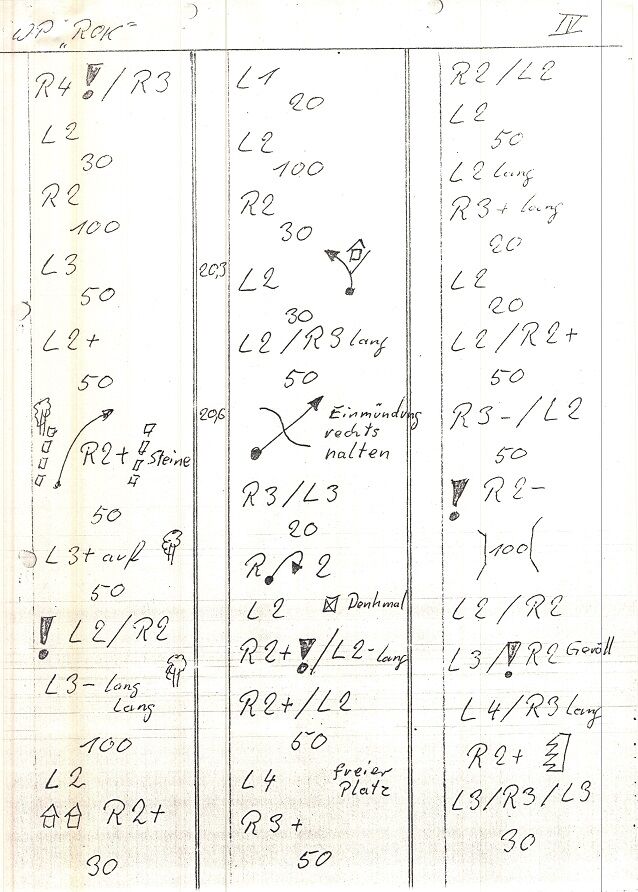 WP "ROK"
IV
R4 ! / R3
L2
30
R2
100
L3
50
L2+
50
R2+ Steine
50
L3+ auf
50
! L2/R2
L3- lang
lang
100
L2
R2+
30
L1
20
L2
100
R2
30
20,3
L2
30
L2/R3 lang
50
20,6
Einmündung
rechts
halten
R3/L3
20
R 2
L2 Denkmal
R2+!/L2- lang
R2+/L2
50
L4 freier
Platz
R3+
50
R2/L2
L2
50
L2 lang
R3+ lang
20
L2
20
L2/R2+
50
R3-/L2
50
! R2-
)100(
L2/R2
L3/! R2 Geröll
L4/R3 lang
R2+
L3/R3/L3
30